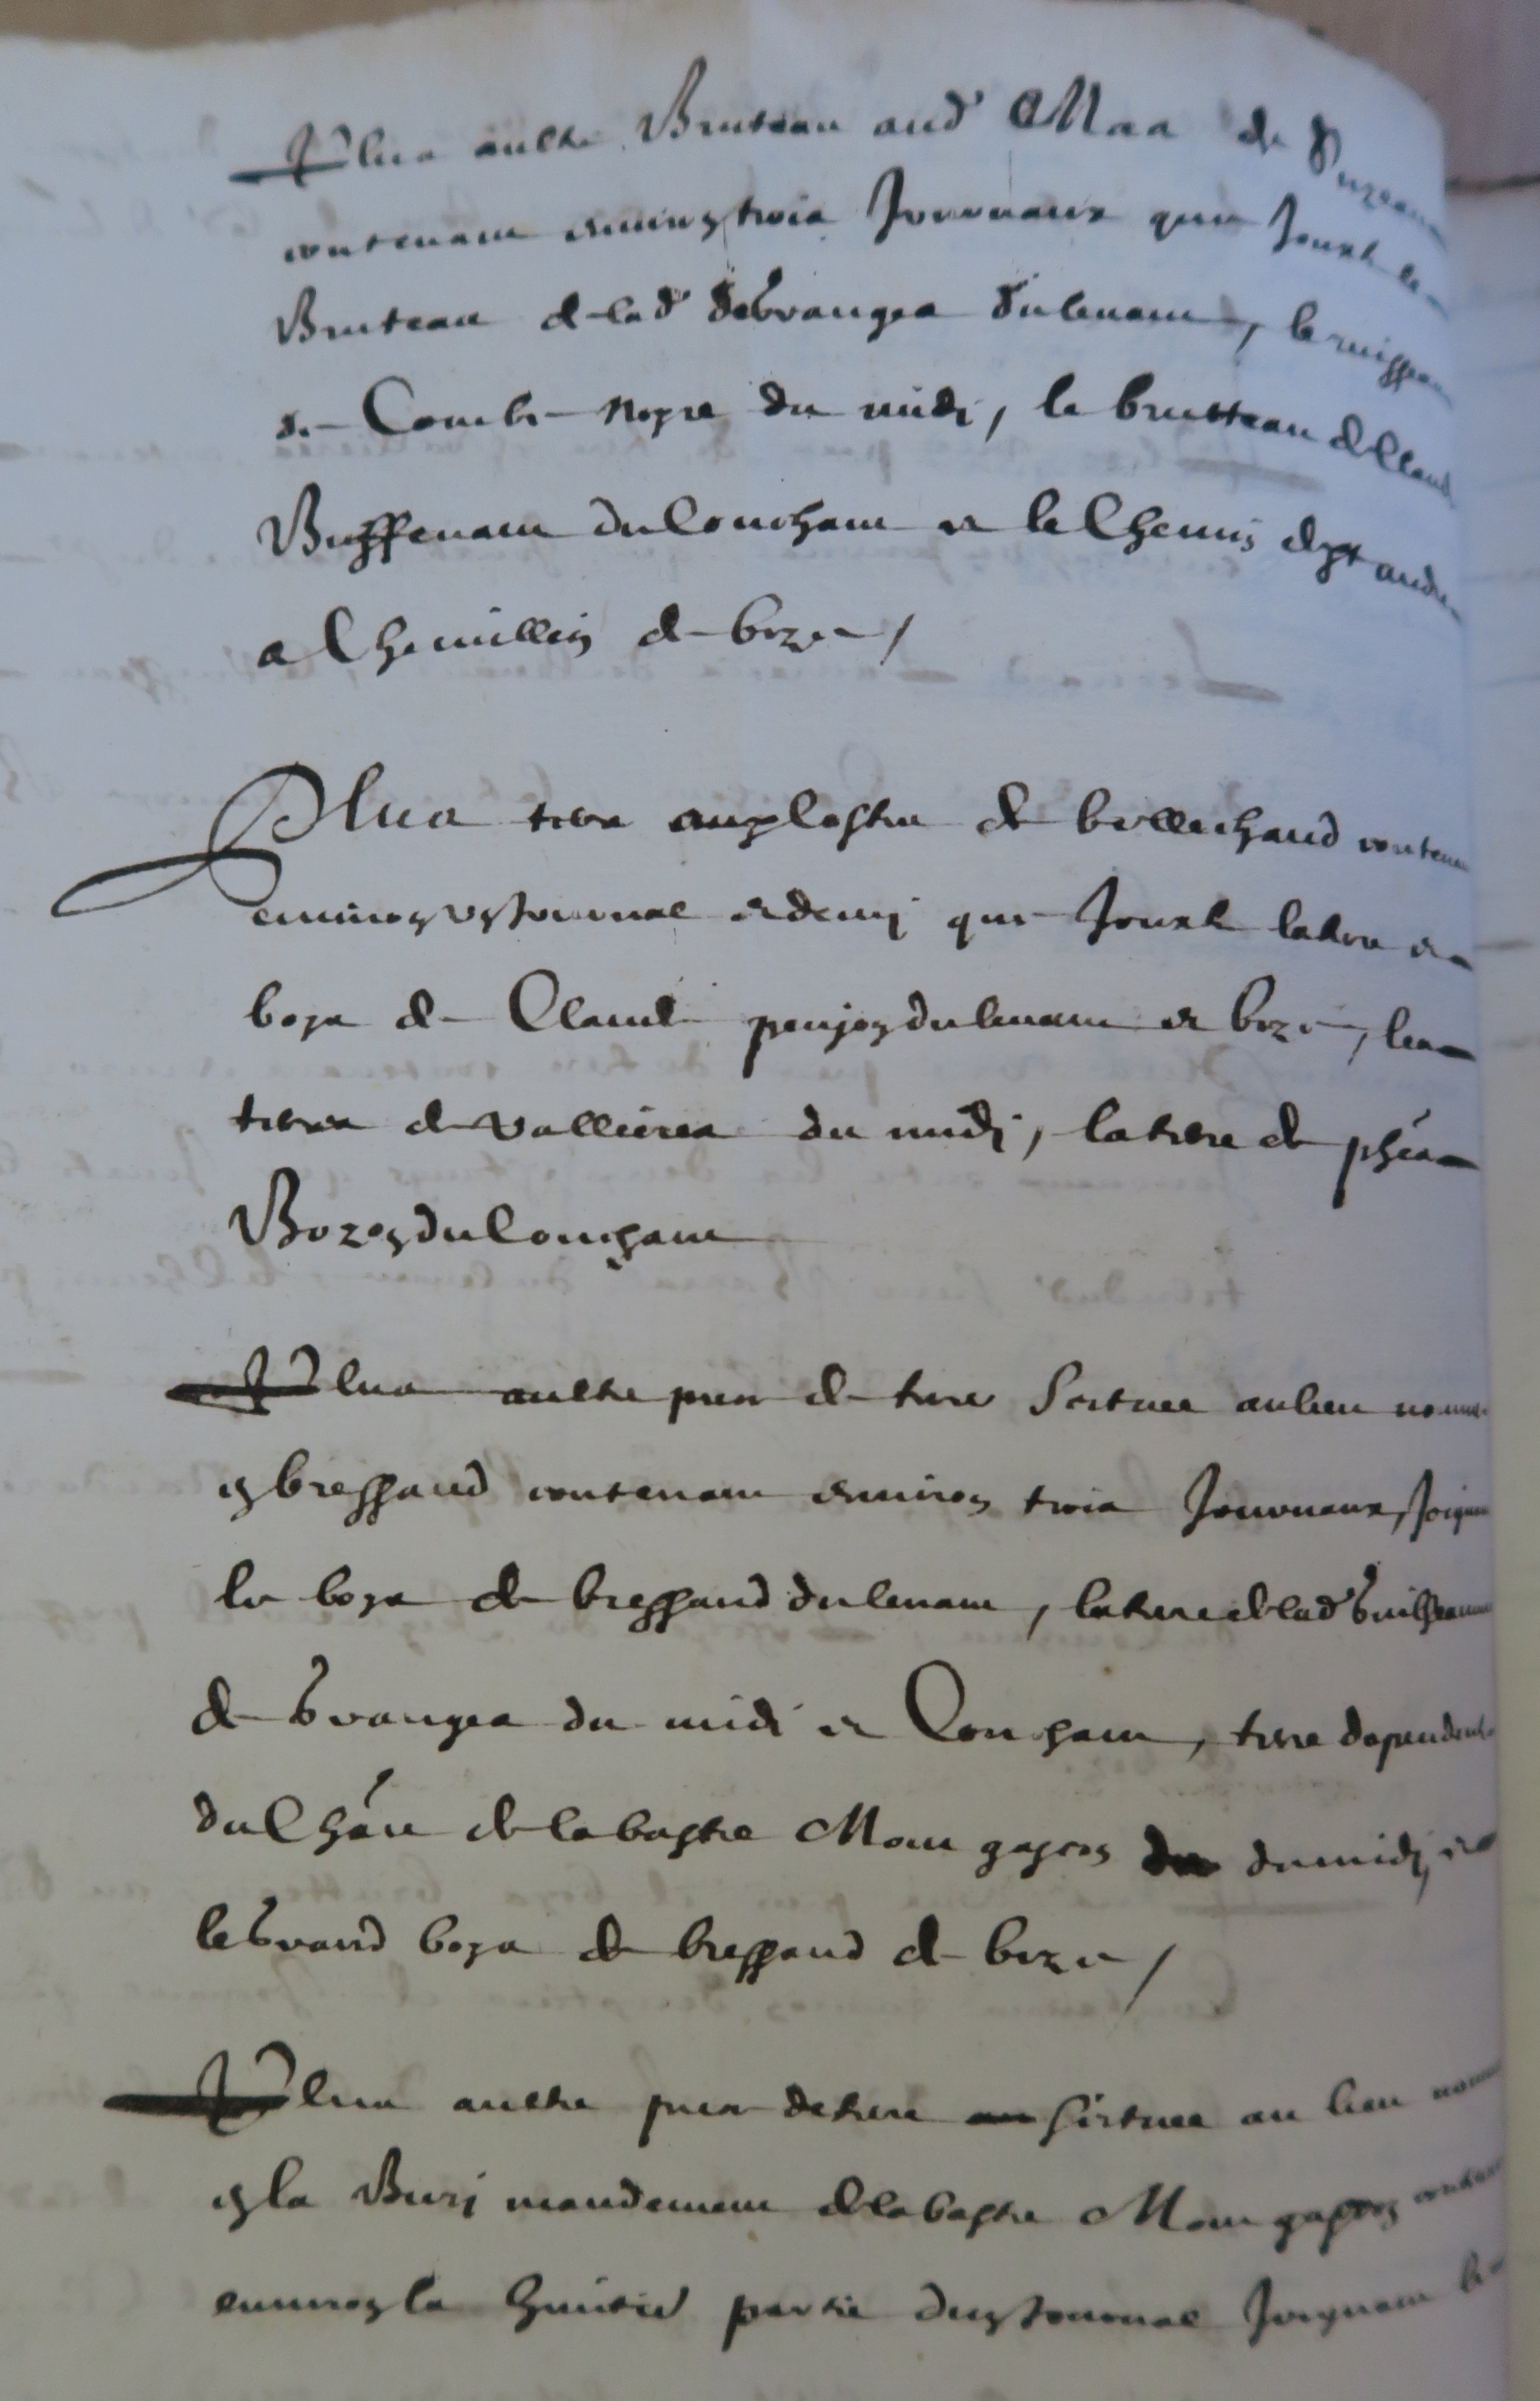 Plus aultre Bruteau aud' Mas de Suzeau
contenant environ trois Journaux qui Jouxte le
Bruteau de lad' de Granges du levant, le ruisseau
de Combe noyre du midi, le brutteau de Claud
Buffenant du Couchant et le Chemin
a Chemillin de bize /
Plus terre emplastre de bellechaud contenan
environ un Journal et demy qui Jouxte la terre et
boys de Claude peujon du levant et bize, les
terres de vallieres du midi, la terre de phés
Bozon du Couchant
Plus aultre piece de terre Scituee au lieu nomme
en bressaud contenant environ trois Journaux, Joignan
les boys de bressaud du levant, la terre de lad'
de Granges du midi et Couchant, terre dependente
du Chãu de la bastie Mont gascon du midi, et
le Grand boys de bressaud de bize /
Plus aultre piece de terre Scituee au lieu nomme
en la Buri mandement de la bastie Mont gascon contenant
environ la huitie partie dun Journal Joignant les